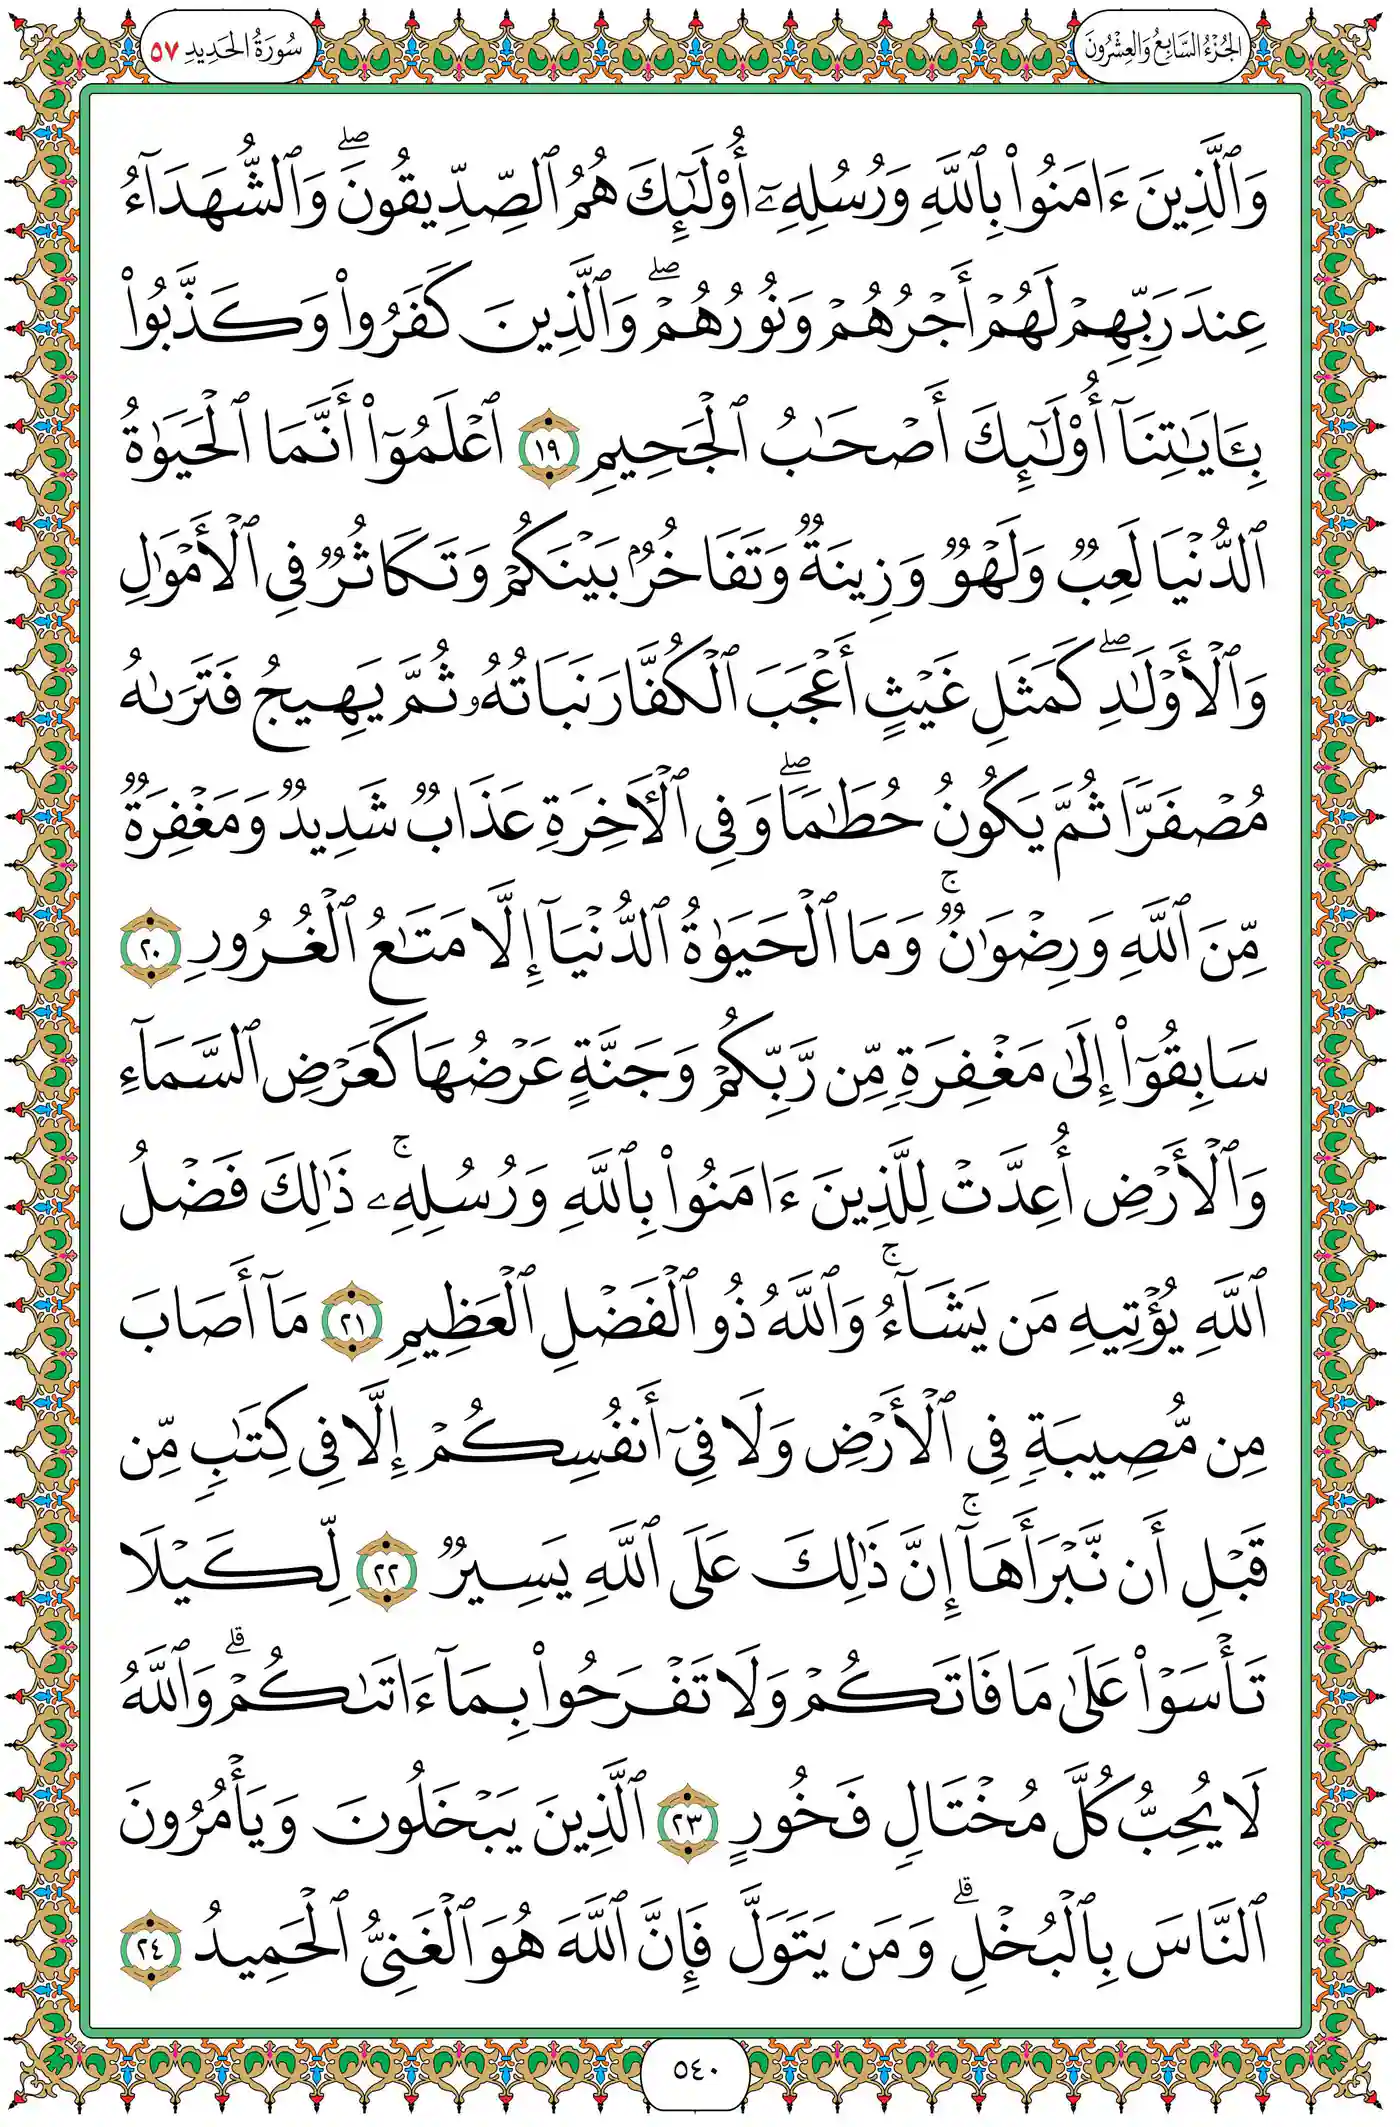 الجُزْءُ السَّابِعُ وَالعِشْرُونَ
سُورَةُ الحَدِيدِ ٥٧
وَٱلَّذِينَ ءَامَنُوا۟ بِٱللَّهِ وَرُسُلِهِۦٓ أُو۟لَـٰٓئِكَ هُمُ ٱلصِّدِّيقُونَ ۖ وَٱلشُّهَدَآءُ
عِندَ رَبِّهِمْ لَهُمْ أَجْرُهُمْ وَنُورُهُمْ ۖ وَٱلَّذِينَ كَفَرُوا۟ وَكَذَّبُوا۟
بِـَٔايَـٰتِنَآ أُو۟لَـٰٓئِكَ أَصْحَـٰبُ ٱلْجَحِيمِ ١٩ ٱعْلَمُوٓا۟ أَنَّمَا ٱلْحَيَوٰةُ
ٱلدُّنْيَا لَعِبٌ وَلَهْوٌ وَزِينَةٌ وَتَفَاخُرٌۢ بَيْنَكُمْ وَتَكَاثُرٌ فِى ٱلْأَمْوَٰلِ
وَٱلْأَوْلَـٰدِ ۖ كَمَثَلِ غَيْثٍ أَعْجَبَ ٱلْكُفَّارَ نَبَاتُهُۥ ثُمَّ يَهِيجُ فَتَرَىٰهُ
مُصْفَرًّا ثُمَّ يَكُونُ حُطَـٰمًا ۖ وَفِى ٱلْـَٔاخِرَةِ عَذَابٌ شَدِيدٌ وَمَغْفِرَةٌ
مِّنَ ٱللَّهِ وَرِضْوَٰنٌ ۚ وَمَا ٱلْحَيَوٰةُ ٱلدُّنْيَآ إِلَّا مَتَـٰعُ ٱلْغُرُورِ ٢٠
سَابِقُوٓا۟ إِلَىٰ مَغْفِرَةٍ مِّن رَّبِّكُمْ وَجَنَّةٍ عَرْضُهَا كَعَرْضِ ٱلسَّمَآءِ
وَٱلْأَرْضِ أُعِدَّتْ لِلَّذِينَ ءَامَنُوا۟ بِٱللَّهِ وَرُسُلِهِۦ ۚ ذَٰلِكَ فَضْلُ
ٱللَّهِ يُؤْتِيهِ مَن يَشَآءُ ۚ وَٱللَّهُ ذُو ٱلْفَضْلِ ٱلْعَظِيمِ ٢١ مَآ أَصَابَ
مِن مُّصِيبَةٍ فِى ٱلْأَرْضِ وَلَا فِىٓ أَنفُسِكُمْ إِلَّا فِى كِتَـٰبٍ مِّن
قَبْلِ أَن نَّبْرَأَهَآ ۚ إِنَّ ذَٰلِكَ عَلَى ٱللَّهِ يَسِيرٌ ٢٢ لِّكَيْلَا
تَأْسَوْا۟ عَلَىٰ مَا فَاتَكُمْ وَلَا تَفْرَحُوا۟ بِمَآ ءَاتَىٰكُمْ ۗ وَٱللَّهُ
لَا يُحِبُّ كُلَّ مُخْتَالٍ فَخُورٍ ٢٣ ٱلَّذِينَ يَبْخَلُونَ وَيَأْمُرُونَ
ٱلنَّاسَ بِٱلْبُخْلِ ۗ وَمَن يَتَوَلَّ فَإِنَّ ٱللَّهَ هُوَ ٱلْغَنِىُّ ٱلْحَمِيدُ ٢٤
٥٤٠